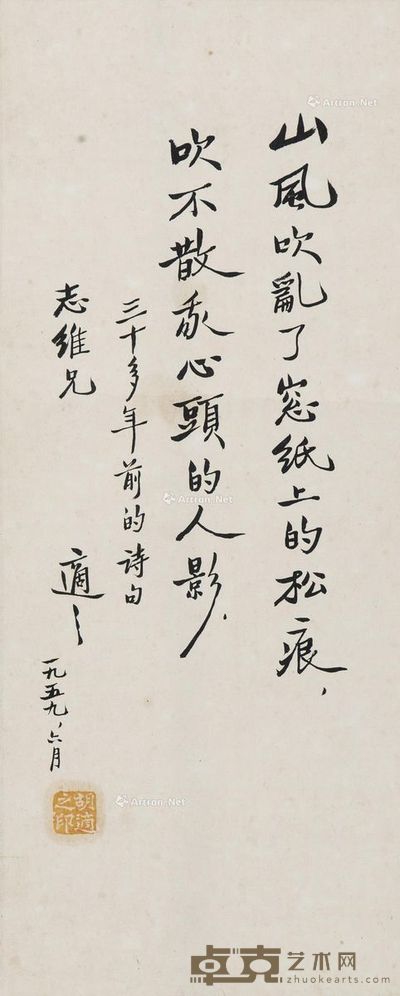 山風吹亂了窓紙上的松痕，
吹不散我心頭的人影．
三十多年前的詩句
志維兄
適之
一九五九，六月
胡適之印
Artron.Net
Artron.Net
Artron.Net
卓克艺术网
zhuokearts.com